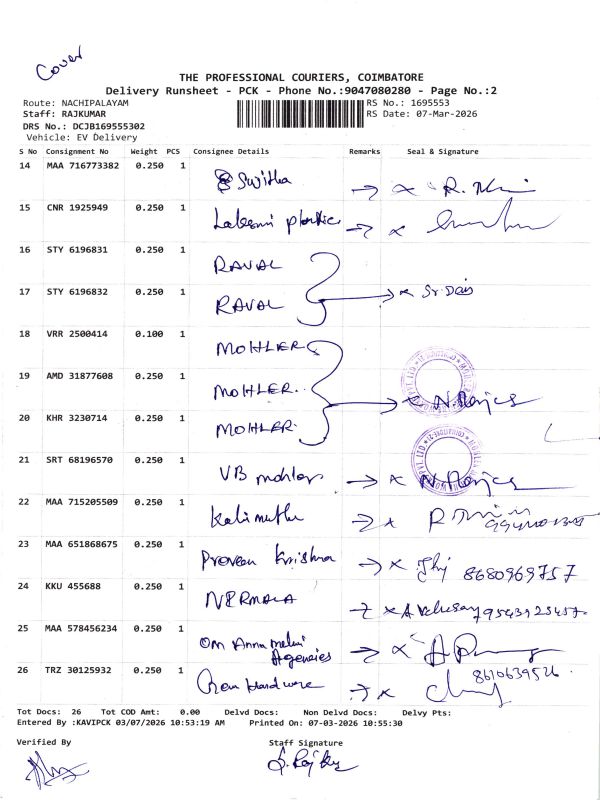 Cover
THE PROFESSIONAL COURIERS, COIMBATORE
Delivery Runsheet - PCK - Phone No.:9047080280 - Page No.:2
Route: NACHIPALAYAM RS No.: 1695553
Staff: RAJKUMAR RS Date: 07-Mar-2026
DRS No.: DCJB169555302
Vehicle: EV Delivery
S No Consignment No Weight PCS Consignee Details Remarks Seal & Signature
14 MAA 716773382 0.250 1 Switha
15 CNR 1925949 0.250 1
16 STY 6196831 0.250 1 RAVAL
17 STY 6196832 0.250 1 RAVAL
18 VRR 2500414 0.100 1 MOHLER
19 AMD 31877608 0.250 1 MOHLER
20 KHR 3230714 0.250 1 MOHLER
21 SRT 68196570 0.250 1 VB mohler
22 MAA 715205509 0.250 1 Kalimuthu
23 MAA 651868675 0.250 1 Praveen Krishna 8680969757
24 KKU 455688 0.250 1 NERMALA
25 MAA 578456234 0.250 1 OM Annamalai
Agencies
26 TRZ 30125932 0.250 1 Hardware 8610639526
Tot Docs: 26 Tot COD Amt: 0.00 Delvd Docs: Non Delvd Docs: Delvy Pts:
Entered By :KAVIPCK 03/07/2026 10:53:19 AM Printed On: 07-03-2026 10:55:30
Verified By Staff Signature